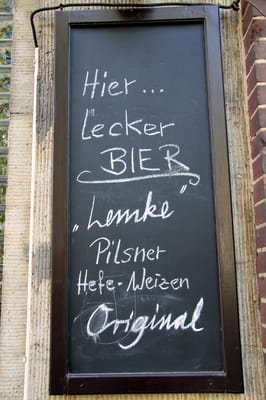 Hier...
Lecker
BIER
„Lemke”
Pilsner
Hefe-Weizen
Original